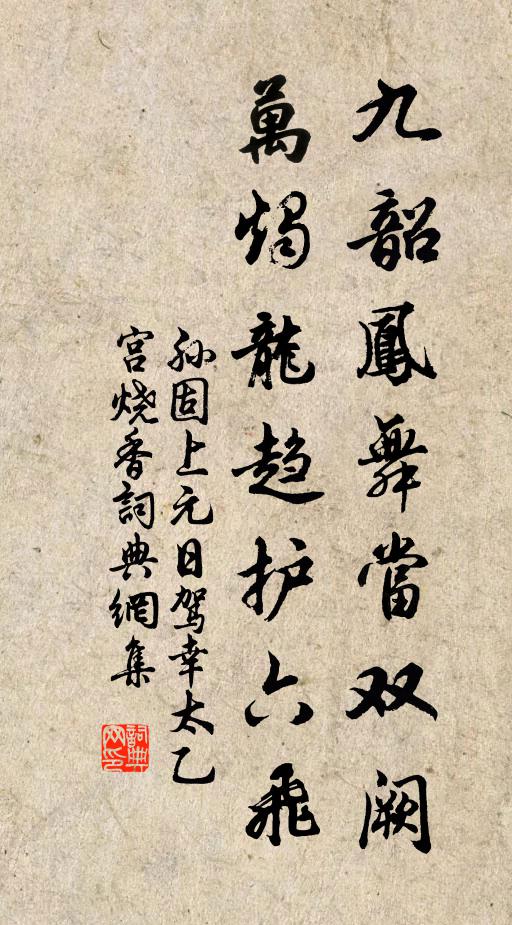 九韶鳳舞當双阙
萬燭龍趋护六飛
孙固上元日驾幸太乙
宫烧香詞典網集
詞典网印